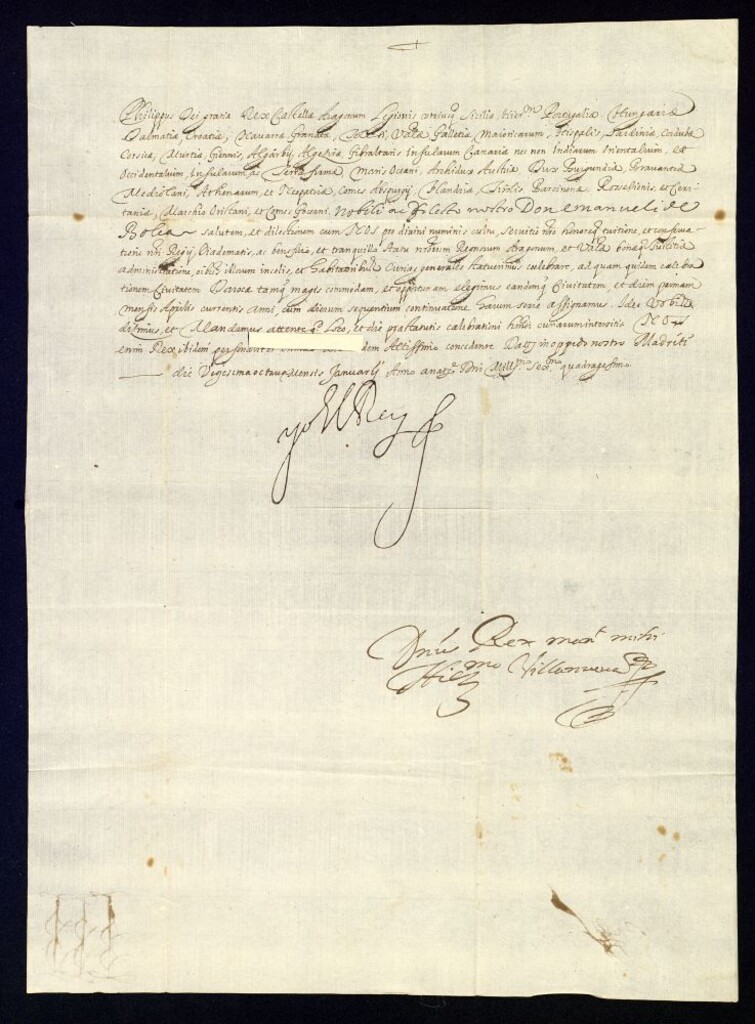 Philippus Dei gratia Rex Castellæ Aragonum Legionis utriusq Siciliæ Hier.m Portugaliæ, Hungariæ
Dalmatiæ, Croatiæ, Navarræ, Granatæ, Toleti, Valæ Galletiæ, Maioricarum, Hispalis, Sardiniæ, Cordubæ
Corsicæ, Murtiæ, Giennis, Algarbij, Algeziræ, Gibraltaris Insularum Canariæ nec non Indiarum Orientalium, et
Occidentalium, Insularum, ac Terræ firmæ, Maris Oceani, Archidux Austriæ Dux Burgundiæ, Bravantiæ
Mediolani, Athenarum, et Neopatriæ, Comes Abspurgij, Flandriæ, Tirolis, Barcinonæ, Rossilionis, et Ceri-
taniæ, Marchio Oristani, et Comes Goceani. Nobili ac Dilecto nostro Don emanueli de
Bolea salutem, et dilectionem cum NOS pro divini numinis cultu, servitii nri honorisq tuitione, et conserva-
tione nri Regij Diadematis, ac benefitio, et tranquillo statu nrorum Regnorum Aragonum, et Valæ bonæq Iustitiæ
administratione, eisq illorum incolis, et habitatoribus Curias generales statuerimus celebrare, ad quam quidem celebra-
tionem Civitatem Darocæ tamq magis commodam, et opportunam elegimus eandemq Civitatem, et diem primam
mensis Aprilis currentis anni, cum dierum sequentium continuatione harum serie assignamus. Ideo Vobis
dicimus, et Mandamus attente q Loco, et die præstatutis celebrationi hmoi curiarum intersitis NOS
enim Rex ibidem personaliter dem Altissimo concedente Datt in oppido nostro Madriti
die Vigesima octava Mensis Januarij Anno a natte Dni Mill.mo Sex.mo quadragesimo.
yo El Rey
Dnus Rex mant mihi
Hier.mo Villanueva